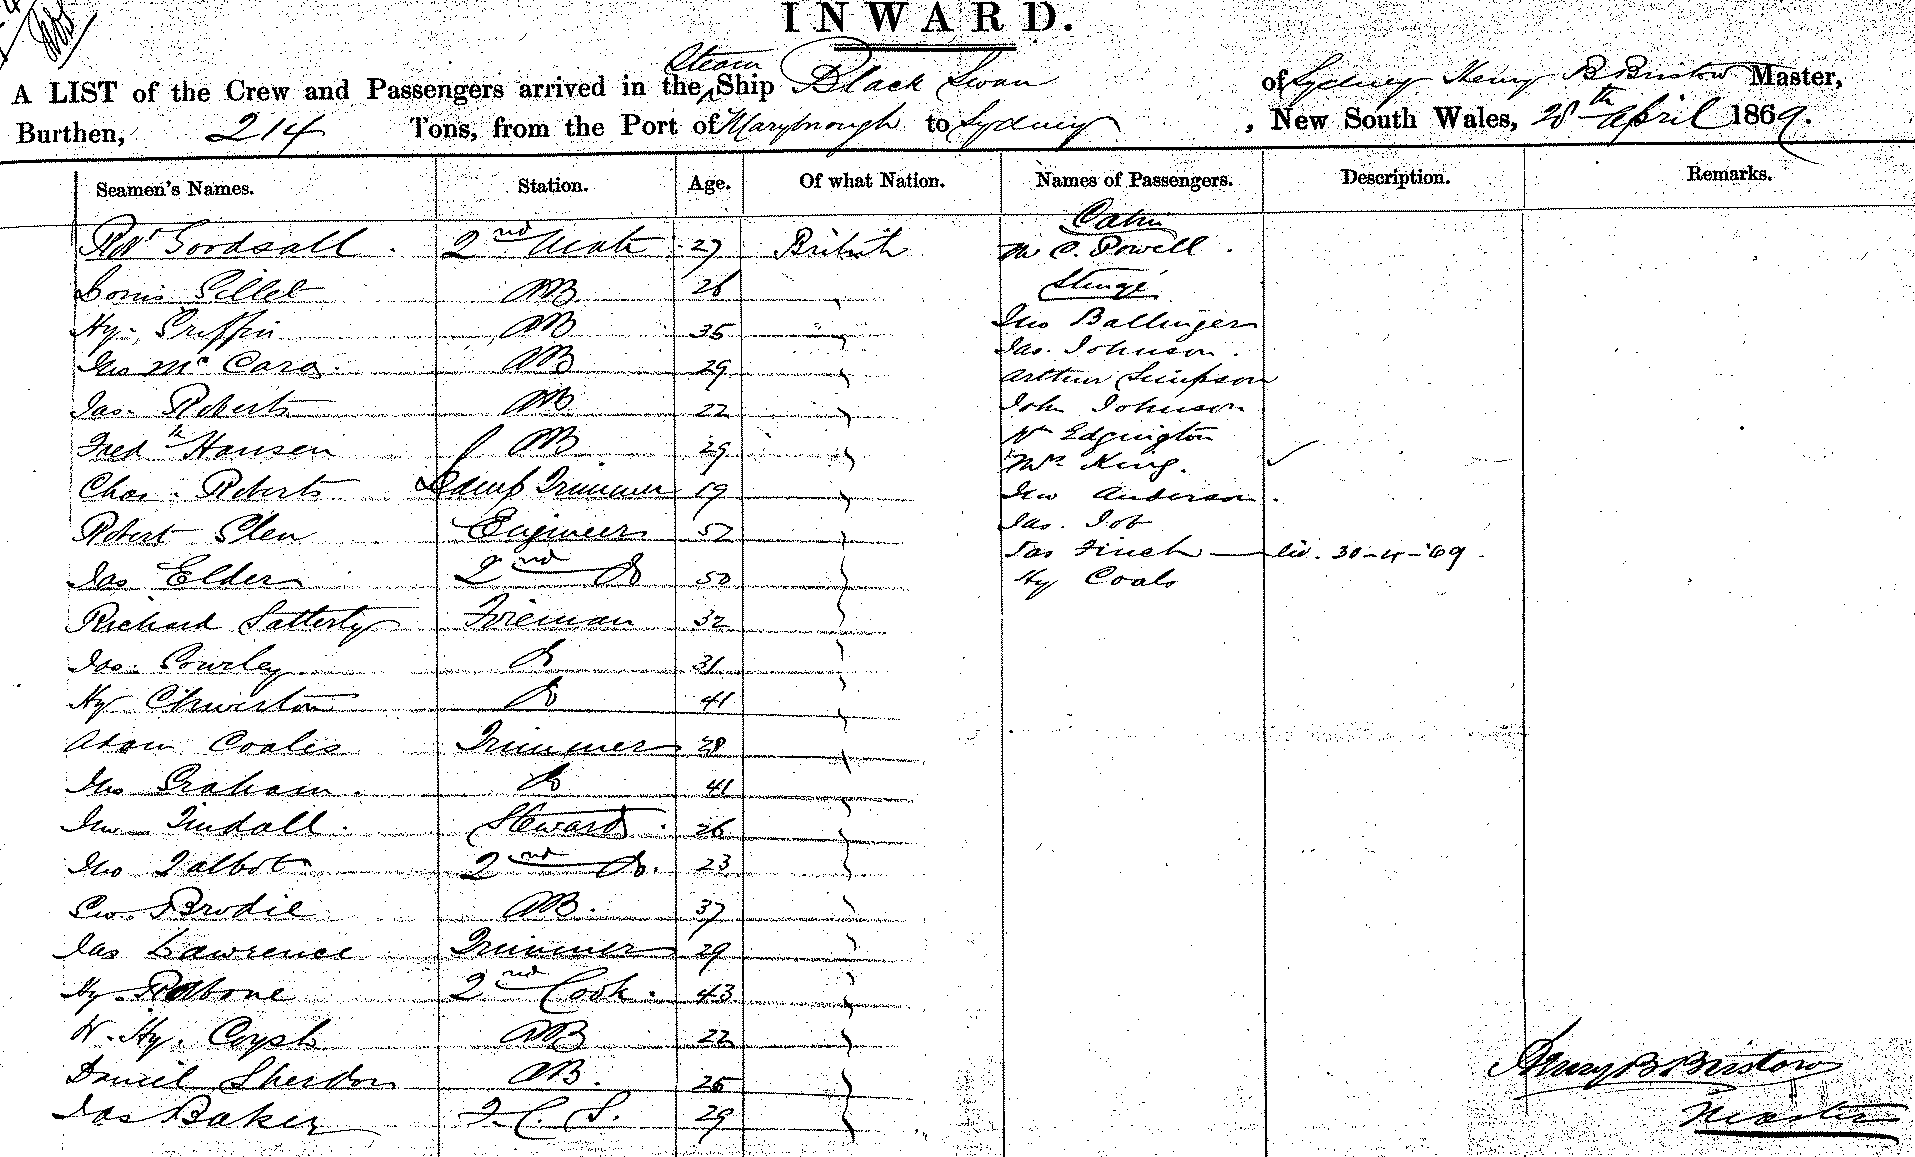 INWARD.
Steam
A LIST of the Crew and Passengers arrived in the Ship Black Swan of Sydney Henry B Bristow Master,
Burthen, 214 Tons, from the Port of Maryborough to Sydney, New South Wales, 28th April 1869.
Seamen's Names. Station. Age. Of what Nation. Names of Passengers. Description. Remarks.
Cabin
Goodsall 2nd Mate 27 British C. Powell
AB 26
Hy. Griffin AB 35 Jno Ballinger
Jas. Johnson
Jno McCara AB 29 Arthur Simpson
Jas. Roberts AB 22 John Johnson
Fredk Hansen AB 29 Wm Edgington
Mrs King.
Chas. Roberts Trimmer 19 Jno Anderson
Robert Glen Engineer 52 Jas. Job
Jas Finch 30-4-69
Jas Elder 2nd Do 50 Hy Coals
Richard Satterly Fireman 32
Jas. Gourley Do 31
Hy Do 41
Adam Coales Trimmer 28
Jno Graham Do 41
Jno Tindall Steward 26
Jno Talbot 2nd Do. 23
Geo. Brodie AB. 37
Jas Lawrence Trimmer 29
Hy. Rabone 2nd Cook. 43
W. Hy. AB 22
Henry B Bristow
Daniel Sheridan AB. 25
Master
Jas Baker F.C.S. 29